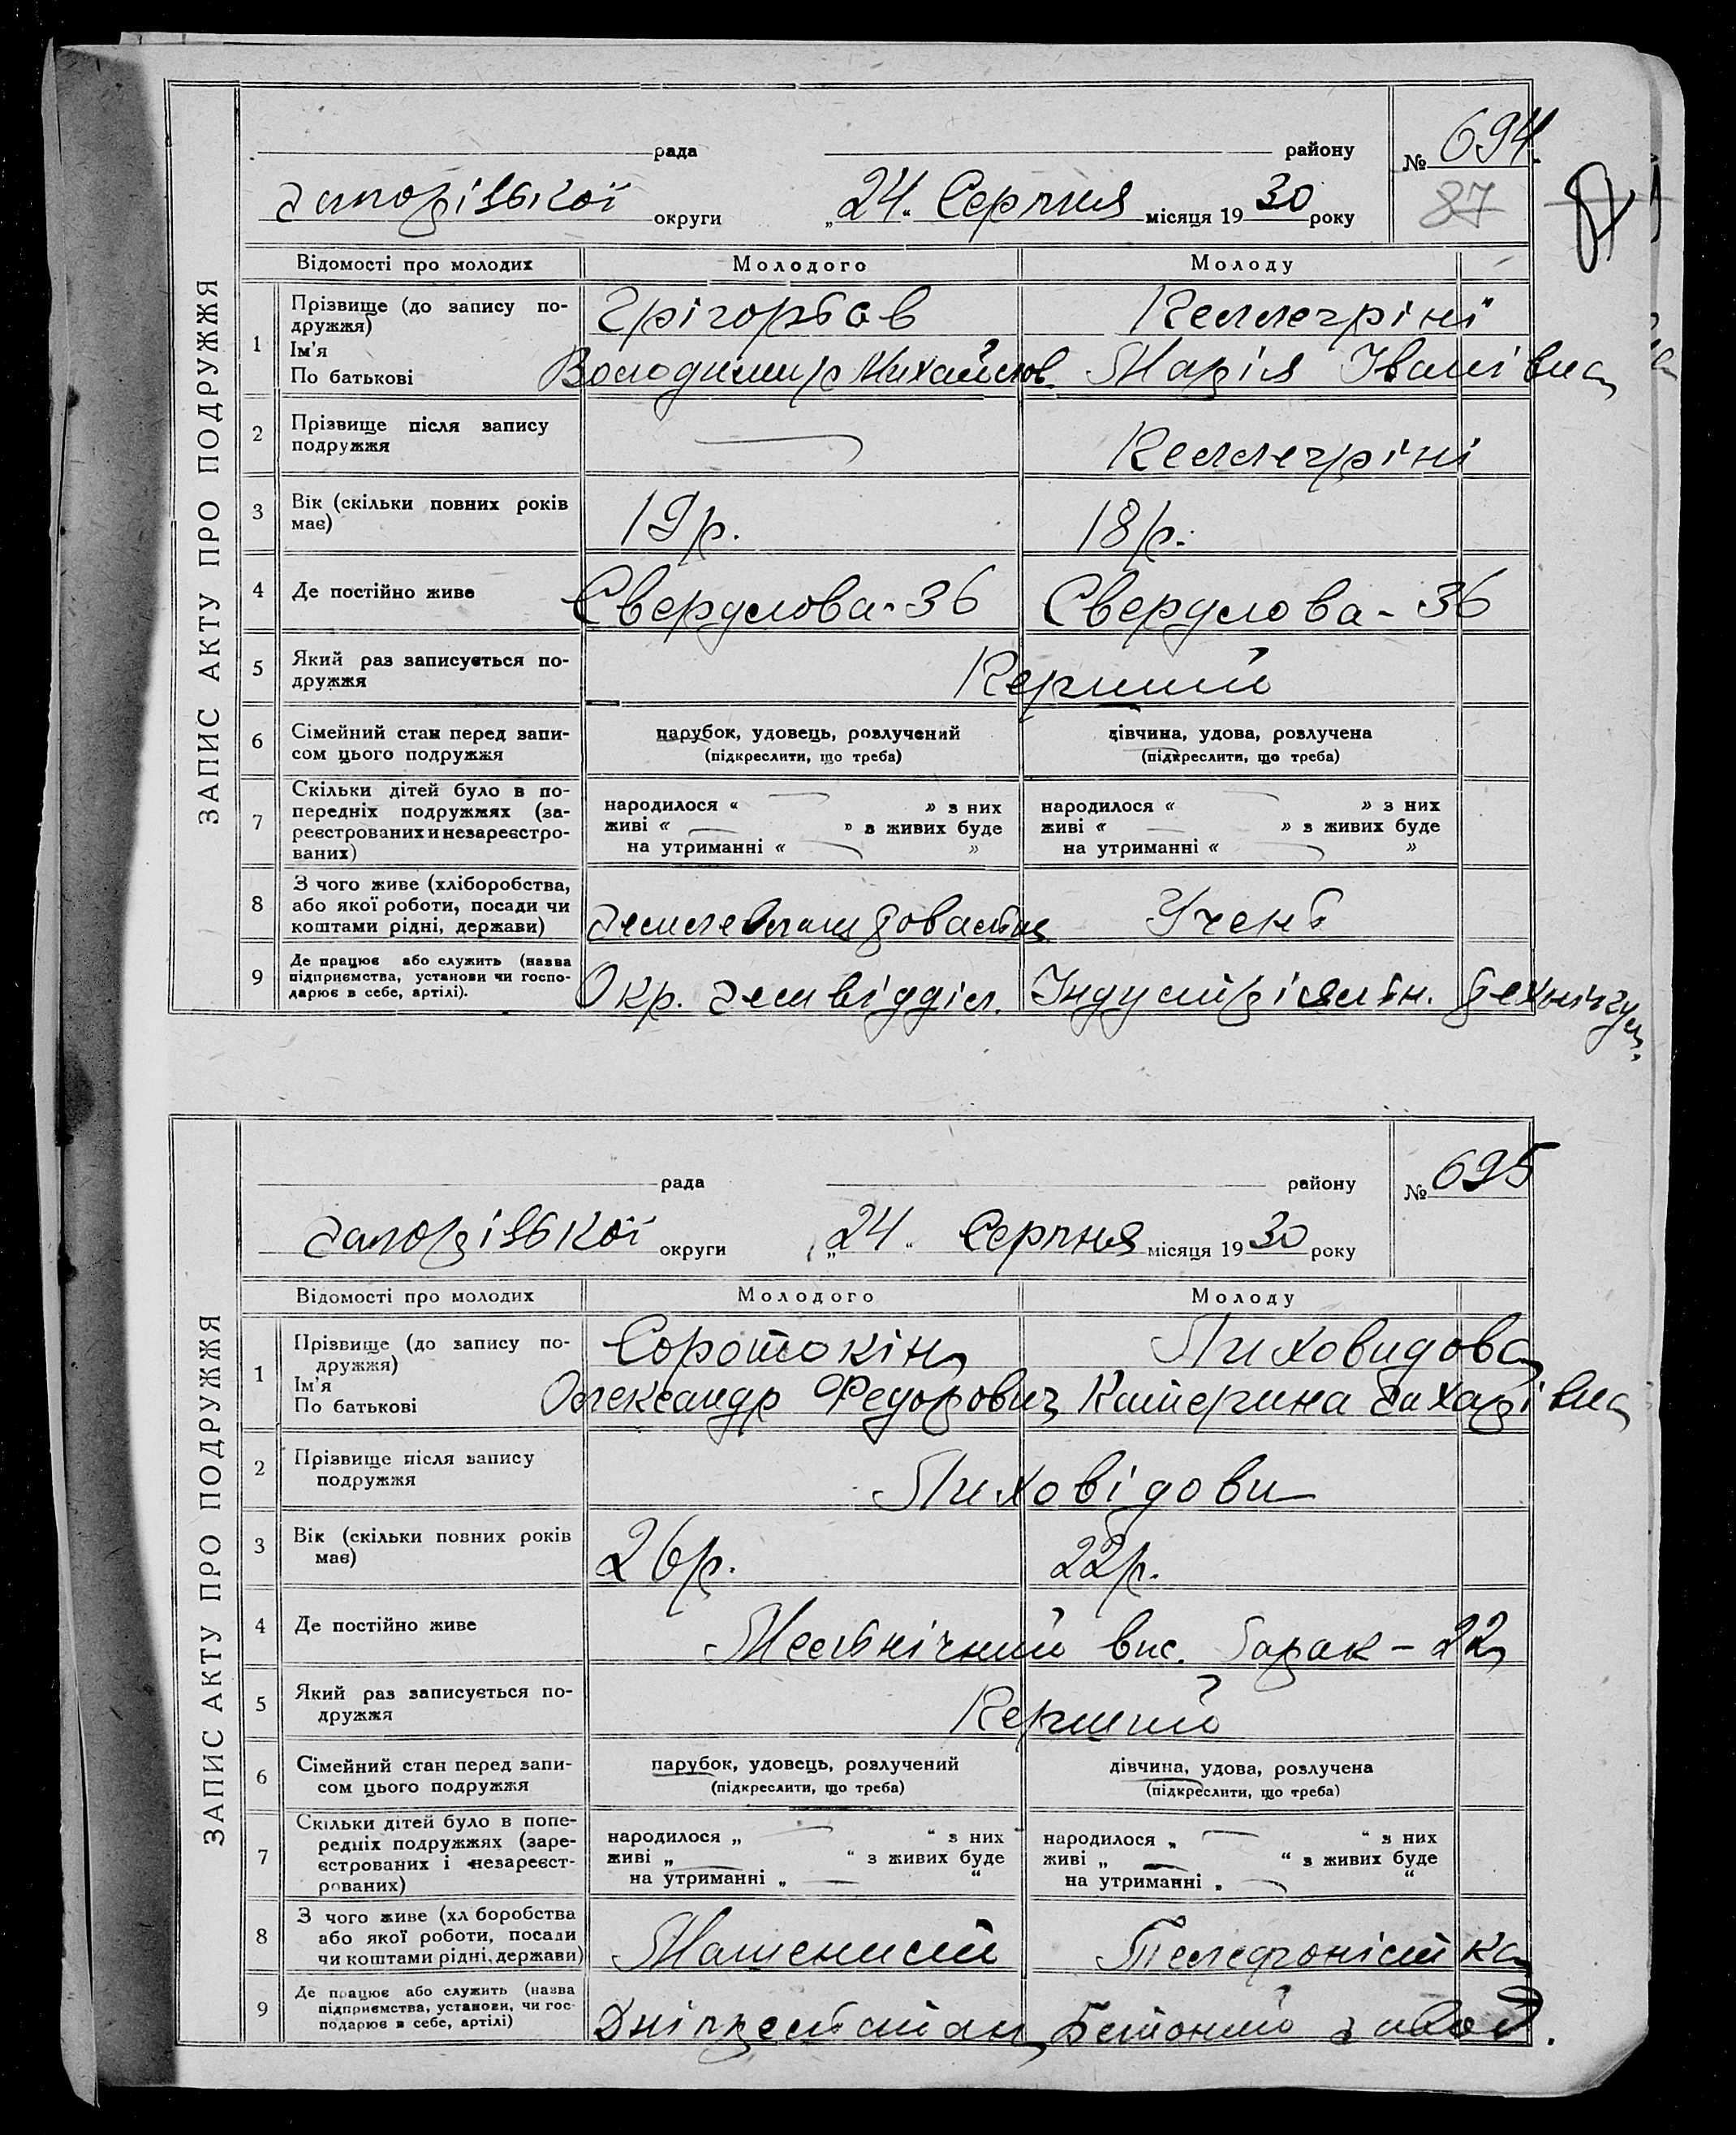 ЗАПИС АКТУ ПРО ПОДРУЖЖЯ
рада району № 694.
Запорізької округи „24“ Серпня місяця 1930 року
87
Відомості про молодих Молодого Молоду
1 Прізвище (до запису по-
дружжя) Грігорьєв Пеллегріні
Ім'я
По батькові Володимир Михайлов. Марія Іванівна
2 Прізвище після запису
подружжя — Пеллегріні
3 Вік (скільки повних років
має) 19 р. 18 р.
4 Де постійно живе Свердлова-36 Свердлова-36
5 Який раз записується по-
дружжя Перший
6 Сімейний стан перед запи-
сом цього подружжя
парубок, удовець, розлучений
(підкреслити, що треба)
дівчина, удова, розлучена
(підкреслити, що треба)
7 Скільки дітей було в по-
передніх подружжях (за-
реєстрованих и незареєстро-
ваних)
народилося « — » з них
живі « — » з живих буде
на утриманні « — »
народилося « — » з них
живі « — » з живих буде
на утриманні « — »
8 З чого живе (хліборобства,
або якої роботи, посади чи
коштами рідні, держави) Учень
9 Де працює або служить (назва
підприємства, установи чи госпо-
дарює в себе, артілі). Окр. земвідділ. Індустріяльн. технікум.
ЗАПИС АКТУ ПРО ПОДРУЖЖЯ
рада району № 695
Запорізької округи „24“ Серпня місяця 1930 року
Відомості про молодих Молодого Молоду
1 Прізвище (до запису по-
дружжя) Соротокін Лиховидова
Ім'я
По батькові Олександр Федорович Катерина Захарівна
2 Прізвище після запису
подружжя Лиховідови
3 Вік (скільки повних років
має) 26 р. 22 р.
4 Де постійно живе вис. барак - 22
5 Який раз записується по-
дружжя Перший
6 Сімейний стан перед запи-
сом цього подружжя
парубок, удовець, розлучений
(підкреслити, що треба)
дівчина, удова, розлучена
(підкреслити, що треба)
7 Скільки дітей було в попе-
редніх подружжях (заре-
єстрованих і незареєст-
рованих)
народилося „ — “ з них
живі „ — “ з живих буде
на утриманні „ — “
народилося „ — “ з них
живі „ — “ з живих буде
на утриманні „ — “
8 З чого живе (хл боробства
або якої роботи, посади
чи коштами рідні, держави) Машенист Телефоністка
9 Де працює або служить (назва
підприємства, установи, чи гос-
подарює в себе, артілі) Бетоний завод.